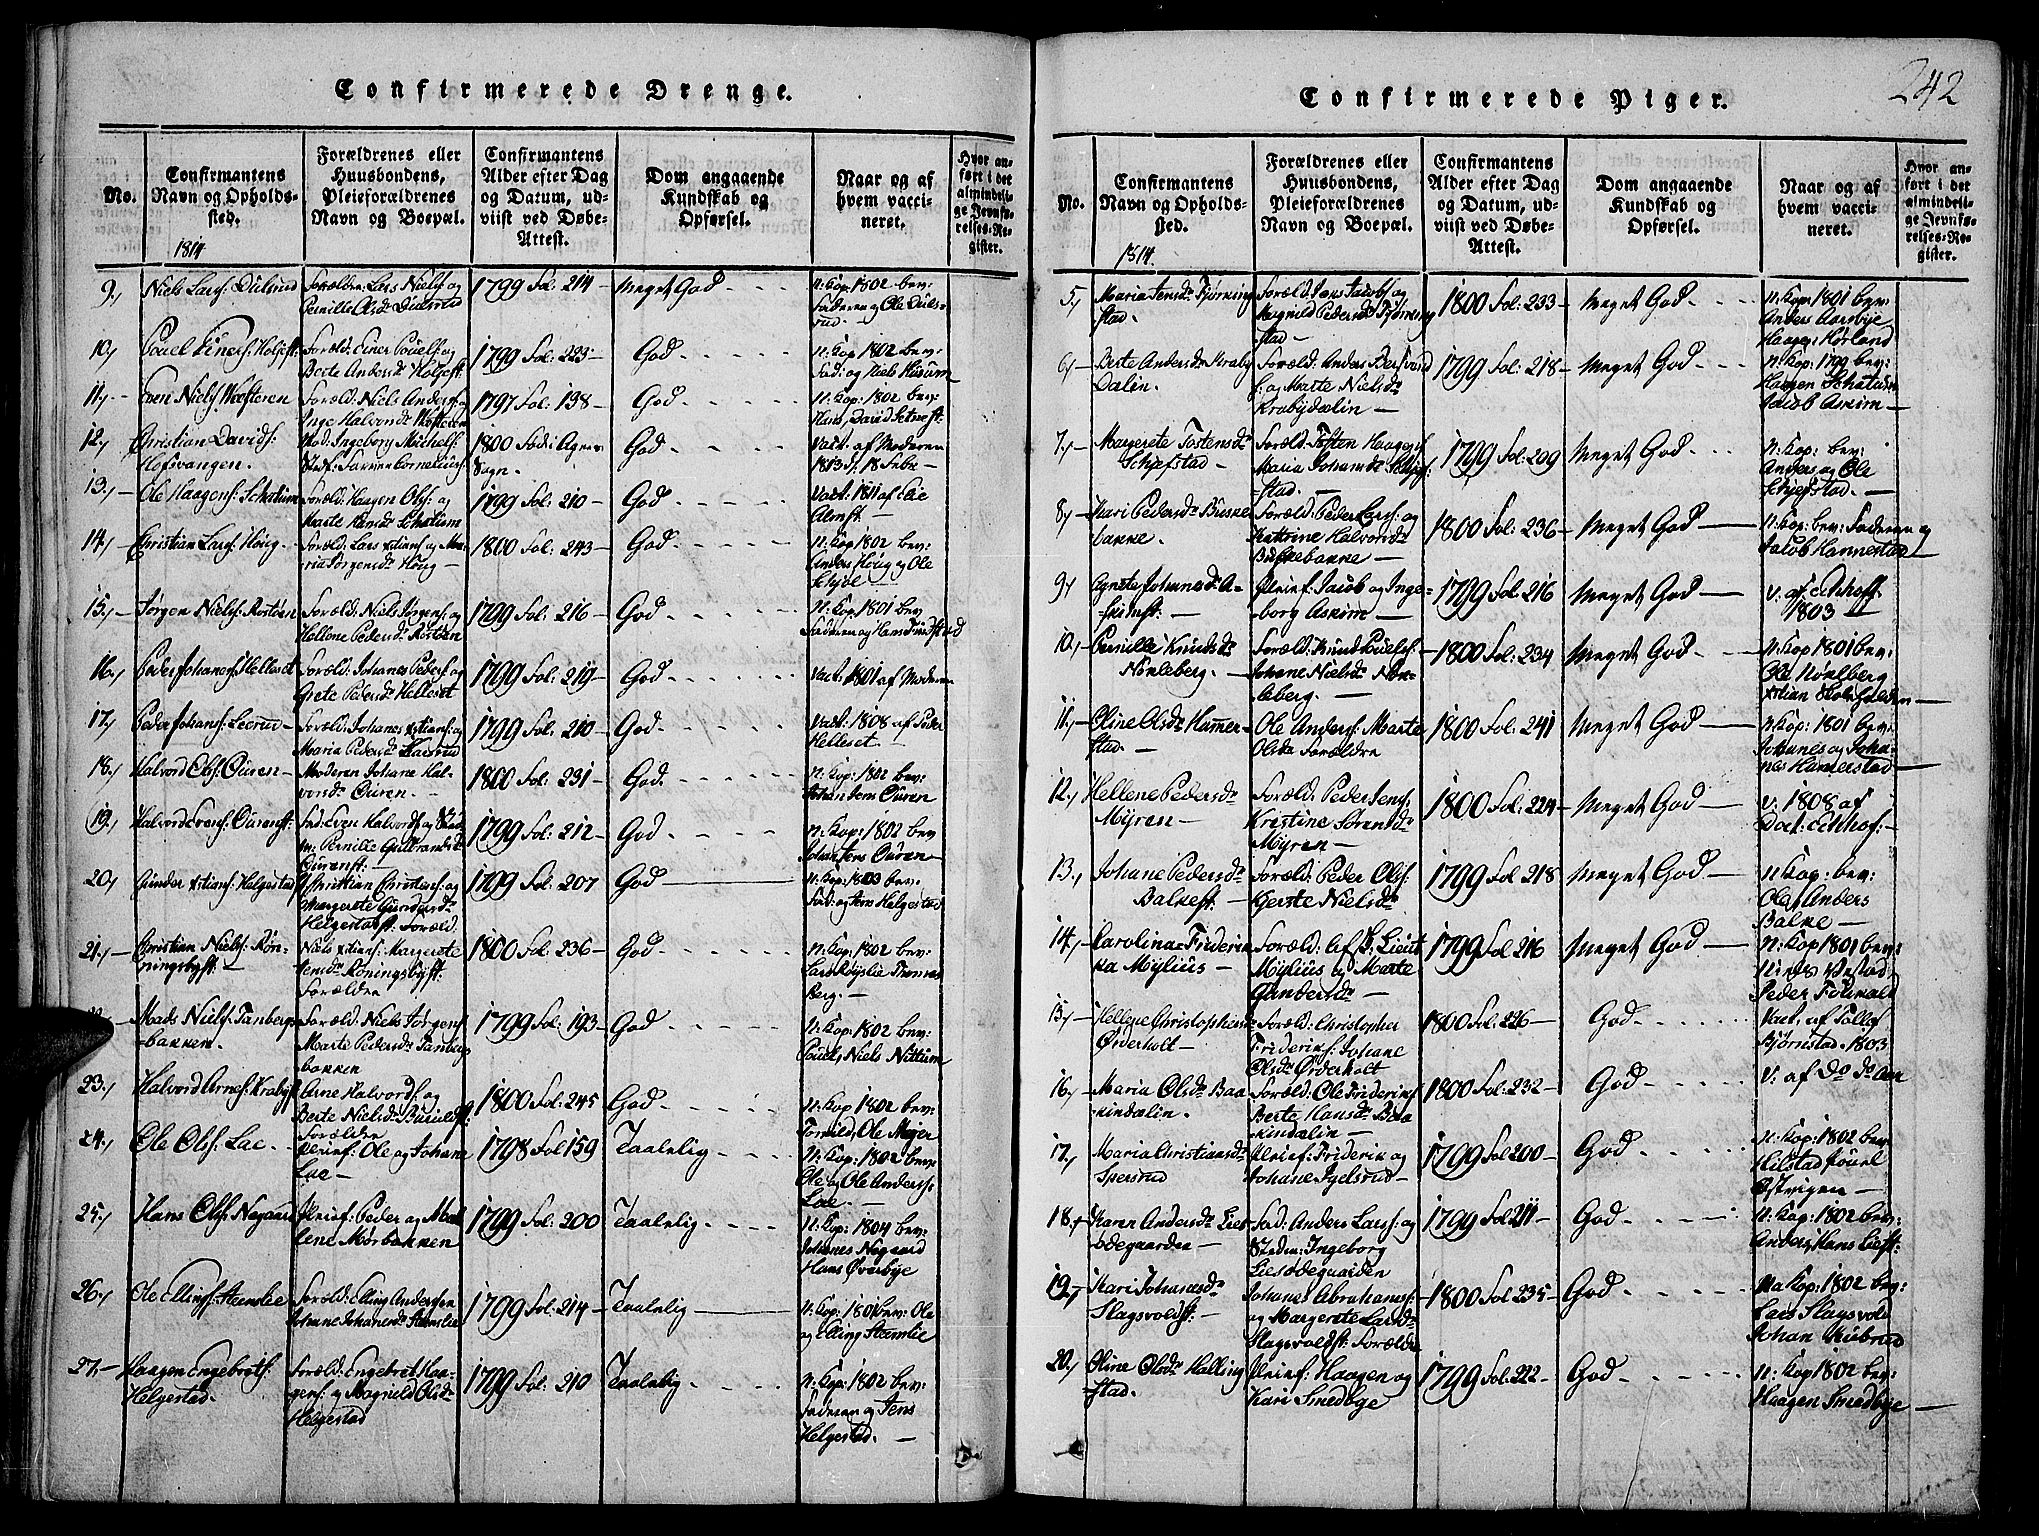 242
Confirmerede Drenge.
No.
Confirmantens
Navn og Opholds-
sted.
1814
Forældrenes eller
Huusbondens,
Pleieforældrenes
Navn og Boepæl.
Confirmantens
Alder efter Dag
og Datum, ud-
viist ved Døbe-
Attest.
Dom angaaende
Kundskab og
Opførsel.
Naar og af
hvem vacci-
neret.
Hvor an-
ført i det
almindeli-
ge Jevnfø-
relses-Re-
gister.
9, Niels Larss: Dulsrud
Forældre Lars Nielss: og
Pernille Olsd: Dulsrud
1799 Fol: 214 —
Meget God
n: Kop: 1802 bev:
Faderen og Ole Duls-
rud. —
10, Povel Einers: Holjeft:
Foræld: Einer Povels: og
Berte Andersd: Holjeft:
1799 Fol: 223 —
God
n: Kop 1802 bev:
Fad: og Niels
11, Even Niels:
Foræld: Niels Anders: og
Inge Halvorsd:
1797 Fol: 198 —
God
n: Kop: 1802 bev:
Hans, David
12, Christian Davids:
Hofsvangen.
Mod: Ingeborg Michels:
Stedf:
1800
Sogn.
God
Vact: af Moderen
1813 d: 18 Febr —
13, Ole Haagens: Schatum
Foræld: Haagen Ols: og
Marte Hansd: Schatum
1799 Fol: 210 —
God
Vact: 1811 af Elie
14, Christian Larss: Houg.
Foræld: Lars xtians: og Ma-
ria Jørgensd: Houg —
1800 Fol: 243 —
God
n: Kop 1802 bev:
Anders Houg og Ole
15, Jørgen Niels: Rostøen
Foræld: Niels Jørgens: og
Hellene Pedersd: Rostøen
1799 Fol: 216 —
God
n: Kop: 1801 bev
Faderen og Hans
16, Peder Johanes: Helleset
Foræld: Johanes Peders: og
Grete Pedersd: Helleset
1799 Fol: 219 —
God
Vact: 1801 af Moderen
17, Peder Johans: Leerud
Foræld: Johanes xtians: og
Maria Pedersd:
1799 Fol: 210 —
God
Vact: 1808 af Peder
Helleset. —
18, Halvord Ols: Ouren —
Moderen Johane Hal-
vorsd: Ouren. —
1800 Fol: 231 —
God.
n: Kop: 1802 bev:
Johan Jens Ouren
19, Halvord Evens: Ourenft:
Fad: Even Halvords: og
Pernille Gulbrandsd:
Ourenft. —
1799 Fol: 212 —
God
n: Kop: 1802 bev
Johan Jens Ouren —
20, Gunder xtians: Helgestad
Christian Christians: og
Margrete Gundersd:
Helgestadft: Foræld:
1799 Fol: 207
God
n: Kop: 1803 bev:
Fad: og Jens Helgestad
21, Christian Niels: Røn-
ningsbyft: —
Niels xtians: Margrete
Jensd: Røningsbyft:
Forældre
1800 Fol: 236 —
God
n: Kop: 1802 bev:
Thomas
Berg. —
Mads Niels: Tanbergs-
bakken.
Foræld: Niels Jørgens:
Marte Pedersd: Tanbergs-
bakken
1799 Fol: 193 —
God
n: Kop: 1802 bev:
Povel, Niels Nittum
23, Halvord Arnes: Krabyft:
Arne Halvords: og
Berte Nielsd:
Forældre
1800 Fol: 245
God
n: Kop 1802 bev:
Ole Majer
24, Ole Ols: Lae.
Pleief: Ole og Johane
Lae —
1798 Fol 159
Taalelig
n: Kop: 1802 bev:
Ole og Ole Anders:
Lae. —
25, Hans Ols: Nøgaard
Pleief: Peder og Mad-
lene Mørbakken
1799 Fol: 200
Taalelig
n: Kop: 1804 bev:
Johanes Nøgaard
Hans Øverbye
26, Ole Ellings: Stamlie
Foræld: Elling Andersen
Johane Johanesd: Stamlie
1799 Fol: 214
Taalelig
n: Kop: 1801 bev: Ole
og Elling Stamlie
27, Haagen Engebrets:
Helgestad.
Foræld: Engebret Haa-
gens: og Magnild Olsd:
Helgestad
1799 Fol: 210
Taalelig
n: Kop: 1802 bev:
Faderen og Jens
Helgestad. —
Confirmerede Piger.
No.
Confirmantens
Navn og Opholds-
sted.
1814.
Forældrenes eller
Huusbondens,
Pleieforældrenes
Navn og Boepæl.
Confirmantens
Alder efter Dag
og Datum, ud-
viist ved Døbe-
Attest.
Dom angaaende
Kundskab og
Opførsel.
Naar og af
hvem vacci-
neret.
Hvor an-
ført i det
almindeli-
ge Jevnfø-
relses-Re-
gister.
5, Maria Jensd: Tjørning-
stad.
Foræld: Jens Jacobs: og
Magnild Pedersd: Tjørning-
stad —
1800 Fol: 233 —
Meget God
n: Kop: 1801 bev:
Anders Aarsbye
Haagen Hørland
6, Berte Andersd: Kraby
Dalin.
Foræld: Anders
og Marte Nielsd:
Krabydalin —
1799 Fol: 218 —
Meget God
n: Kop: 1799 bev:
Haagen Schatum
Jacob Askim —
7, Margrete Tostensd:
Schiefstad —
Foræld: Tosten Haagens:
Maria Johansd:
stad. —
1799 Fol: 209
Meget God
n: Kop: bev:
Anders og Ole
Schiefstad. —
8, Kari Pedersd: Buske-
bakke.
Foræld: Peder Larss: og
Kattrine Halvorsd:
Buskebakke —
1800 Fol: 236 —
Meget God
n: Kop: bev: Faderen og
Jacob Hannestad
9, Agnete Johanesd: A-
skimft: —
Pleief: Jacob og Inge-
borg Askim —
1799 Fol: 216
Meget God
v. af
1803
10, Pernille Knudsd:
Nøkleberg. —
Foræld: Knud Povels:
Johane Nielsd: Nøk-
leberg. —
1800 Fol: 234
Meget God
n: Kop 1801 bev:
Ole Nøklberg
xtian
11, Oline Olsd: Hammer-
stad. —
Ole Anders: Marte
Olsda Forældre
1800 Fol: 241
Meget God
n: Kop: 1801 bev:
Johanes og Joha-
nes Hamerstad —
12, Hellene Pedersd:
Myren —
Foræld: Peder Jens:
Kristine Sørensd:
Myren —
1800 Fol: 224 —
Meget God
v: 1808 af
Doct:
13, Johane Pedersd:
Balkeft: —
Foræld: Peder Ols:
Gerste Nielsd:
1799 Fol 218
Meget God
n Kop: bev:
Ola, Anders
Balke —
14, Karolina Friderik-
ka Mylius —
Foræld: Af: S: Lieut
Mylius og Marte
Gundersd: —
1799 Fol: 216
Meget God
n: Kop 1801 bev:
Peder
15, Hellene Christophersd:
Ørderholt —
Foræld: Christopher
Frideriks: Johane
Olsd: Ørderholt
1800 Fol: 226 —
God
Vact. af Tollof
Bjørnstad. 1803
16, Maria Olsd: Baa-
kindalin.
Foræld: Ole Frideriks:
Berte Hansd: Baa-
kindalin —
1800 Fol: 232 —
God
v: af Do Do
17, Maria Christiansd:
Spersrud
Pleief: Friderik og
Johane Igelsrud —
1799 Fol 200 —
God
n: Kop: 1802 bev:
Hilstad Povel
Østvigen —
18, Karen Andersd: Lies-
ødegaarden —
Fad: Anders Larss: og
Stedm: Ingeborg
Liesødegaarden
1799 Fol 211 —
God
n: Kop: 1802 bev:
Anders, Hans Lieft:
19, Kari Johanesd:
Slagsvoldft:
Johanes Abrahams:
og Margrete Larsd:
Slagsvoldft: Forældre
1800 Fol 235 —
God
Na Kop: 1802 bev:
Lars Slagsvold
Johan
20, Oline Olsd: Kalling-
stad.
Pleief: Haagen og
Kari Smedbye
1799 Fol: 222 —
God
n: Kop 1802 bev:
Haagen Smedbye